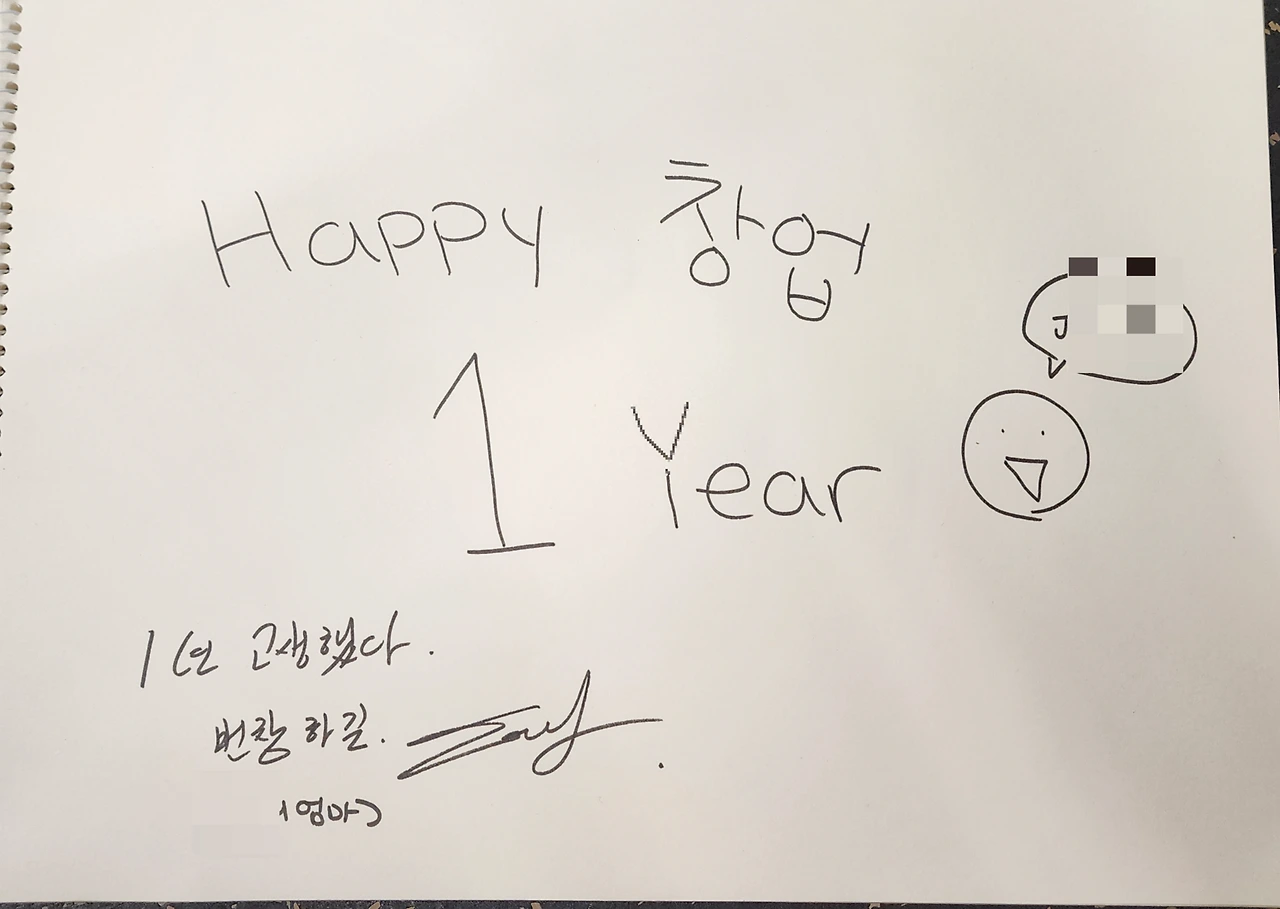 Happy 창업
1 Year
1년 고생했다.
번창하길.
(엄마)